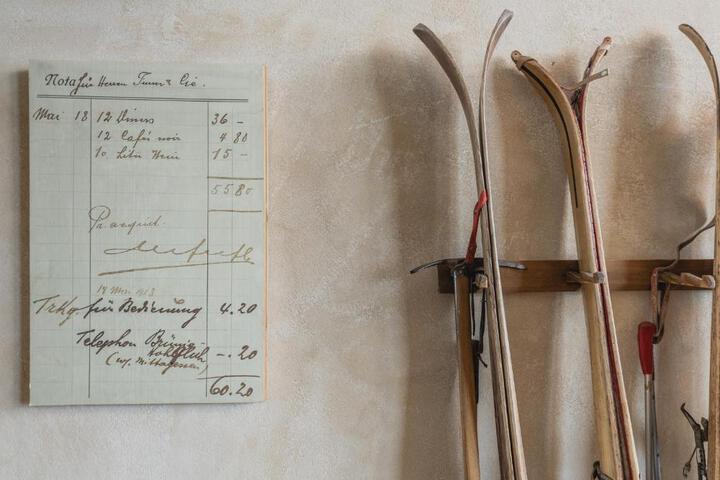 Nota für Herren & Cie.
Mai 18 12 Diners 36 –
12 Café noir 4 80
10 Liter Wein 15 –
55 80
Pr. acquit.
18 Mai 1913
Trkg. für Bedienung 4.20
Telephon Brünig –.20
(wg. Mittagessen)
60.20